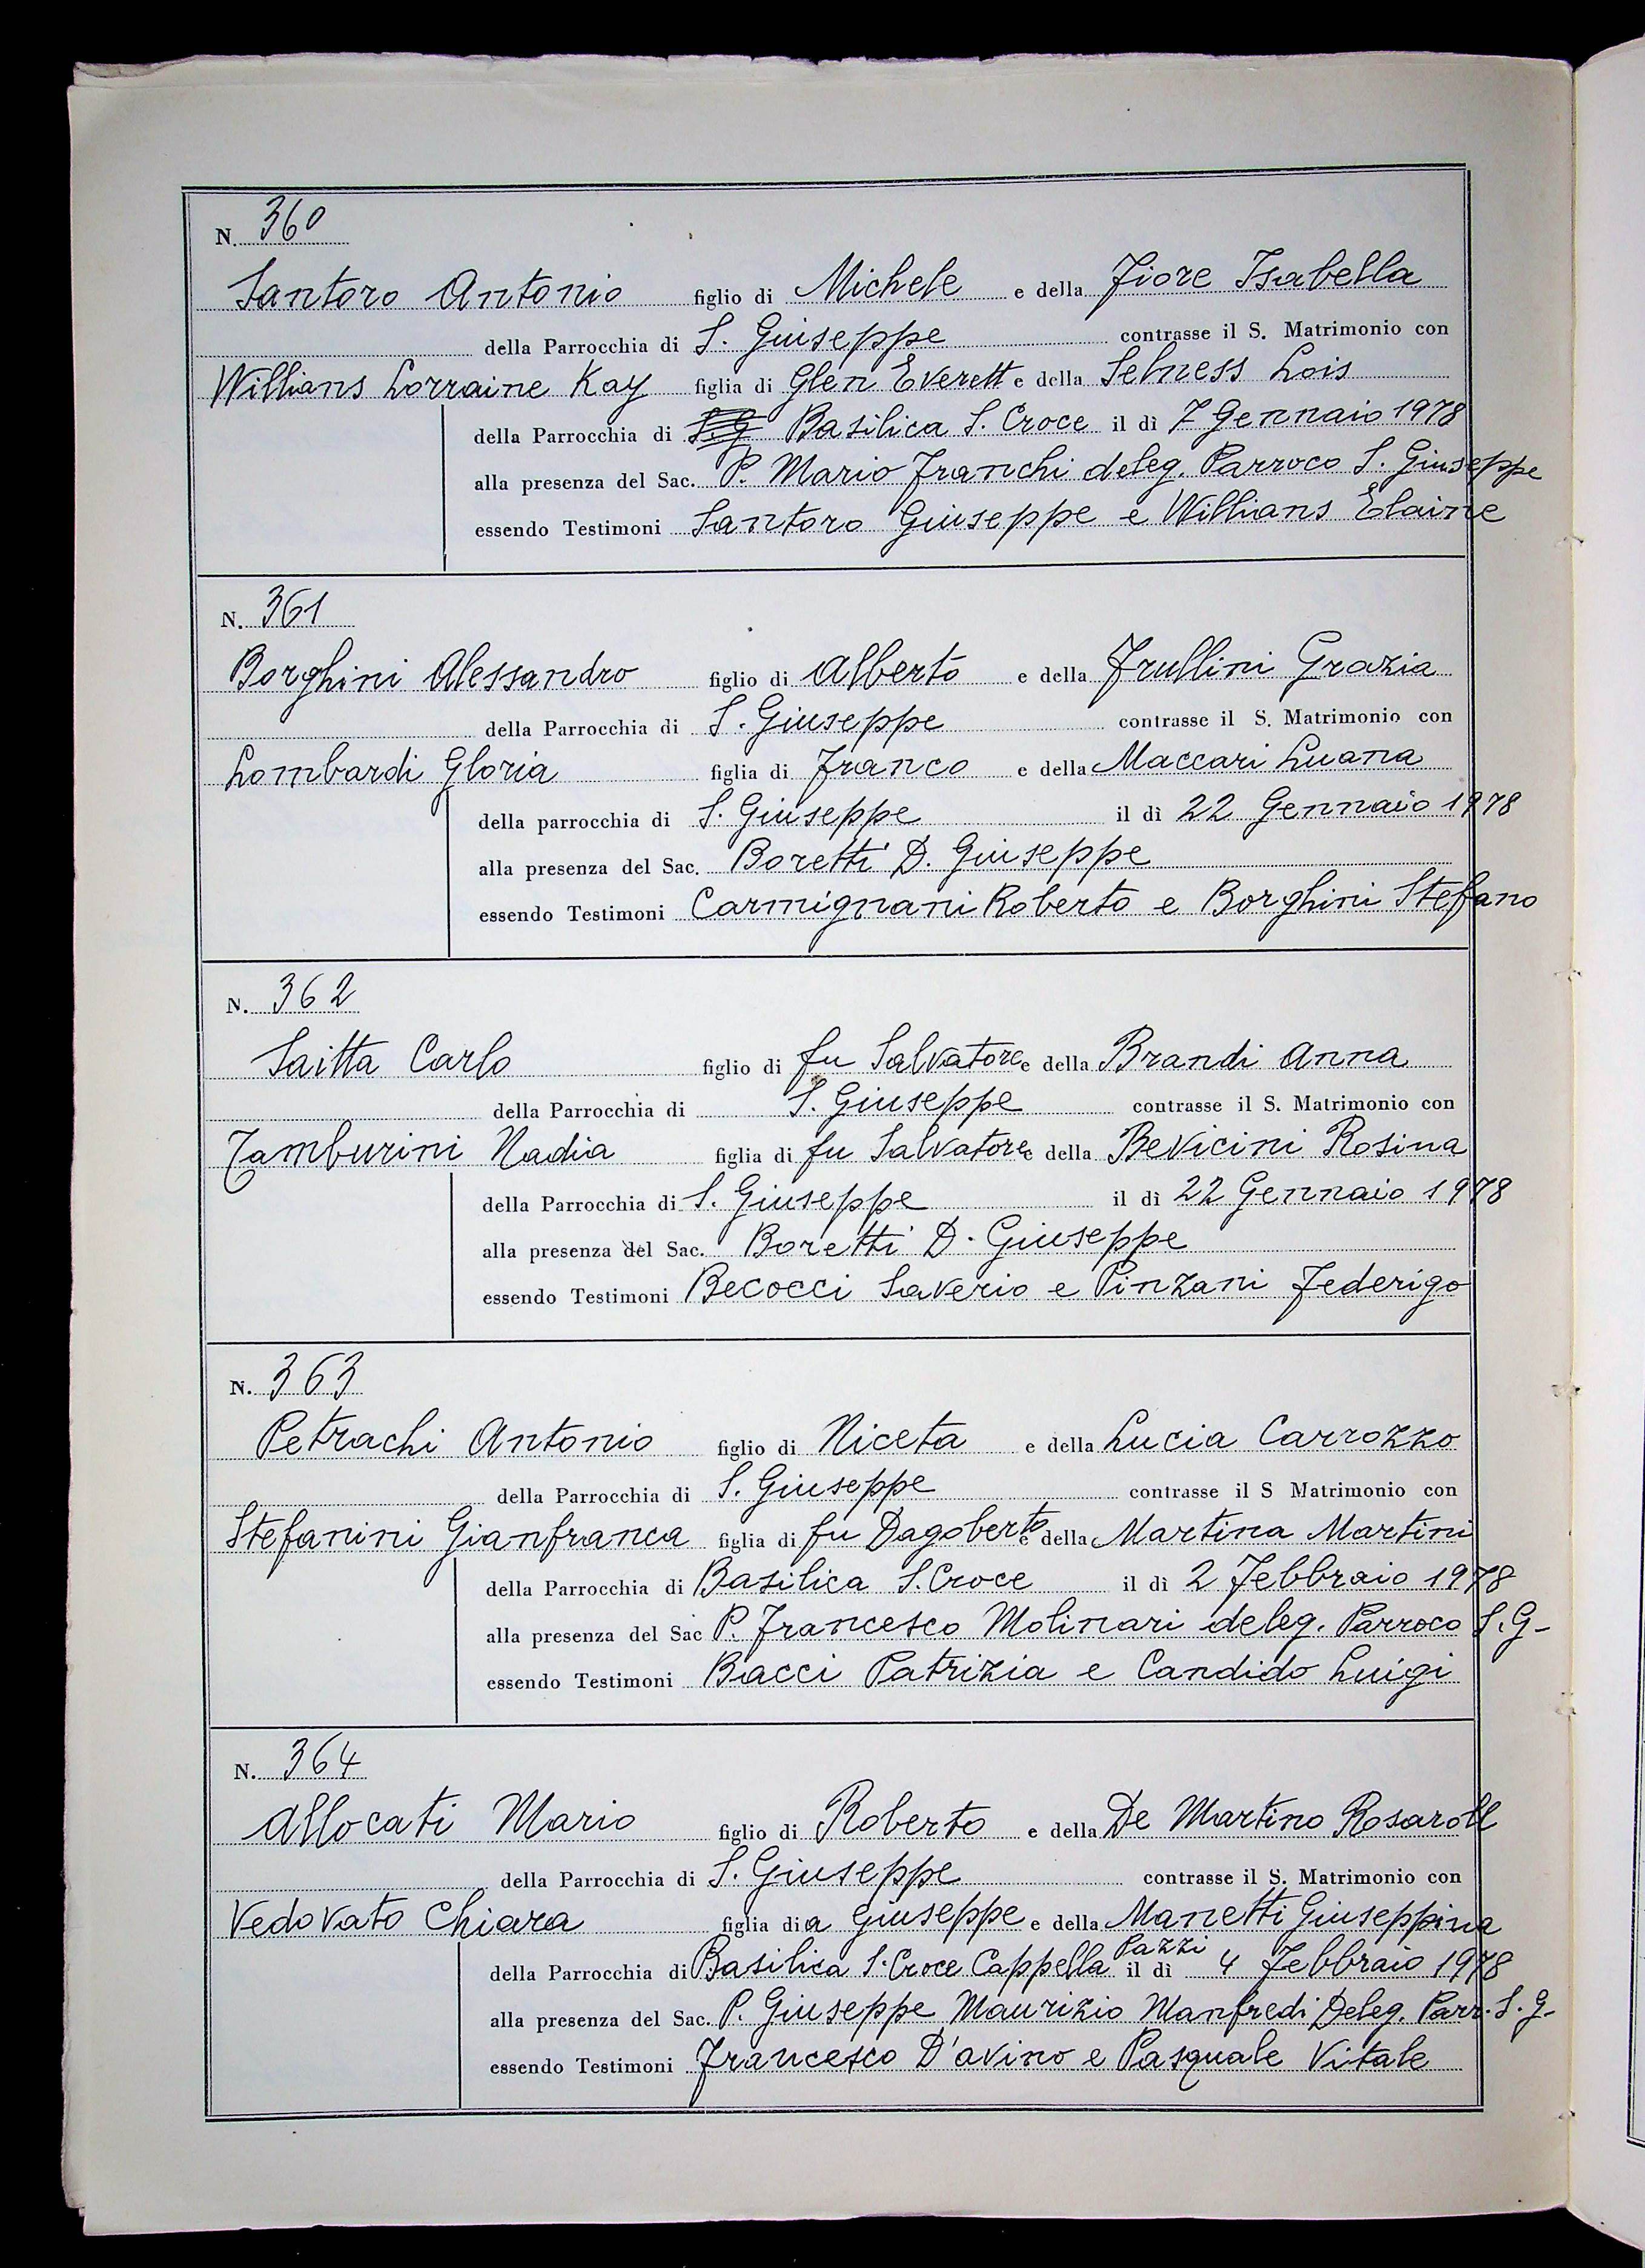 N. 360
Santoro Antonio figlio di Michele e della Fiore Isabella
della Parrocchia di S. Giuseppe contrasse il S. Matrimonio con
Willians Lorraine Kay figlia di Glen Everett e della Selness Lois
della Parrocchia di S. G Basilica S. Croce il dì 7 Gennaio 1978
alla presenza del Sac. P. Mario Franchi deleg. Parroco S. Giuseppe
essendo Testimoni Santoro Giuseppe e Willians Elaine
N. 361
Borghini Alessandro figlio di Alberto e della Frullini Grazia
della Parrocchia di S. Giuseppe contrasse il S. Matrimonio con
Lombardi Gloria figlia di Franco e della Maccari Luana
della parrocchia di S. Giuseppe il dì 22 Gennaio 1978
alla presenza del Sac. Boretti D. Giuseppe
essendo Testimoni Carmignani Roberto e Borghini Stefano
N. 362
Saitta Carlo figlio di fu Salvatore e della Brandi Anna
della Parrocchia di S. Giuseppe contrasse il S. Matrimonio con
Tamburini Nadia figlia di fu Salvatore e della Bevicini Rosina
della Parrocchia di S. Giuseppe il dì 22 Gennaio 1978
alla presenza del Sac. Boretti D. Giuseppe
essendo Testimoni Becocci Saverio e Pinzani Federigo
N. 363
Petrachi Antonio figlio di Niceta e della Lucia Carrozzo
della Parrocchia di S. Giuseppe contrasse il S Matrimonio con
Stefanini Gianfranca figlia di fu Dagoberto e della Martina Martini
della Parrocchia di Basilica S. Croce il dì 2 Febbraio 1978
alla presenza del Sac P. Francesco Molinari deleg. Parroco S. G-
essendo Testimoni Bacci Patrizia e Candido Luigi
N. 364
Allocati Mario figlio di Roberto e della De Martino Rosaroll
della Parrocchia di S. Giuseppe contrasse il S. Matrimonio con
Vedovato Chiara figlia di a Giuseppe e della Manetti Giuseppina
della Parrocchia di Basilica S. Croce Cappella Pazzi il dì 4 Febbraio 1978
alla presenza del Sac. P. Giuseppe Maurizio Manfredi Deleg. Parr. S. G-
essendo Testimoni Francesco D'avino e Pasquale Vitale